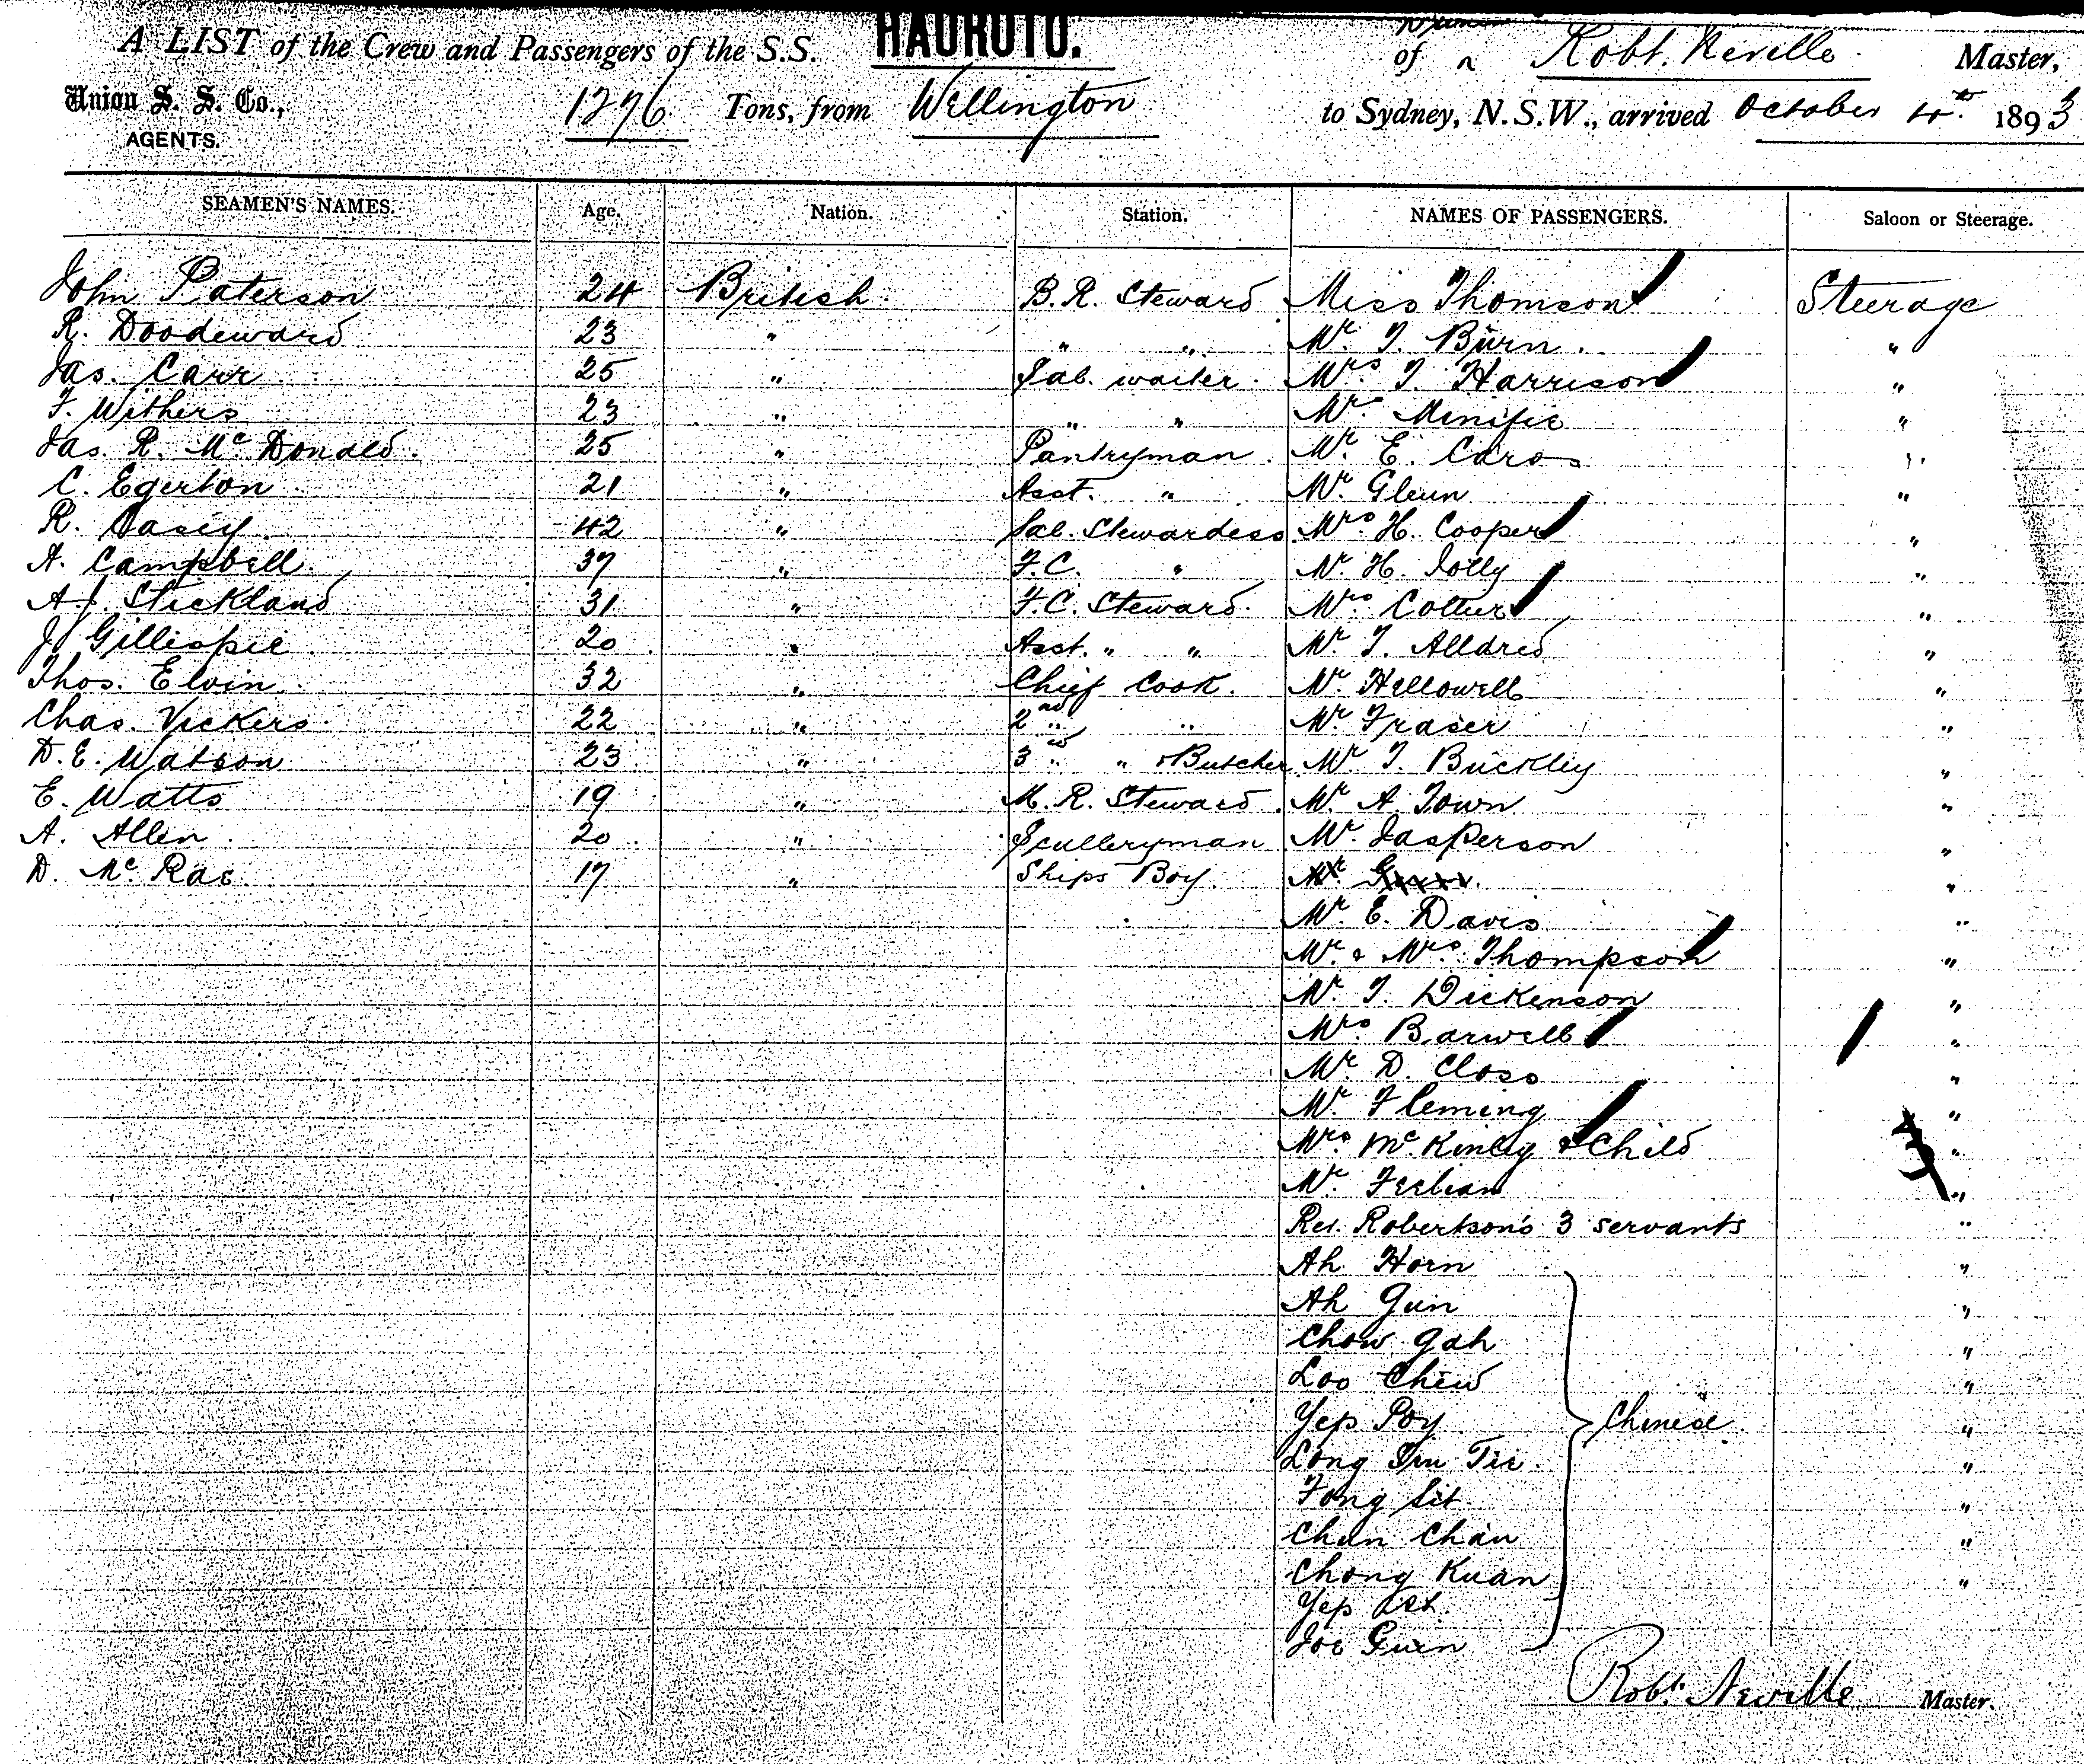 A LIST of the Crew and Passengers of the S.S. HAUROTO. of Robt. Neville Master,
Union S. S. Co., 1276 Tons, from Wellington to Sydney, N.S.W., arrived October 4th 1893
AGENTS.
SEAMEN'S NAMES. Age. Nation. Station. NAMES OF PASSENGERS. Saloon or Steerage.
John Paterson 24 British. B.R. Steward Miss Thomson Steerage
R. Doodeward 23 " " " Mr. T. Burn. "
Jas. Carr 25 " Sal. waiter. Mrs. T. Harrison "
F. Withers 23 " " " Mr. Minifie "
Jas. R. McDonald. 25 " Pantryman. Mr. E. Caro "
C. Egerton 21 " Asst. " Mr. Glenn "
R. Casey 42 " Sal. Stewardess Mrs. H. Cooper "
A. Campbell. 37 " F.C. " Mr. H. Jolly "
A.J. Stickland 31 " F.C. Steward. Mrs. Collier "
J. Gillespie 20 " Asst. " " Mr. T. Alldred "
Thos. Elvin 32 " Chief Cook. Mr. Hellowell "
Chas. Vickers. 22 " 2nd " Mr. Fraser "
D.E. Watson 23 " 3rd " & Butcher Mr. T. Buckley "
E. Watts 19 " M.R. Steward. Mr. A. Town "
A. Allen 20 " Sculleryman Mr. Jasperson "
D. McRae 17 " Ships Boy. Mr. "
Mr. E. Davis "
Mr. & Mrs. Thompson "
Mr. T. Dickenson "
Mrs. Barwell "
Mr. D. Closs "
Mr. Fleming "
Mrs. McKinley & Child "
Mr. "
Rev. Robertson's 3 servants "
Ah Horn "
Ah Gun "
Chow Gah "
Loo Chew "
Yep Poy Chinese "
Long Tie. "
Fong Sit "
Chun Chan "
Chong Kuan "
Yep
Joe Guen
Robt. Neville Master.